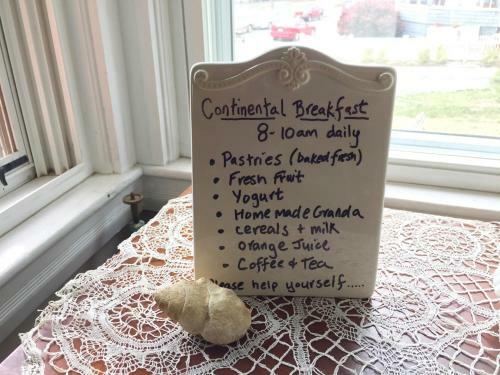 Continental Breakfast
8-10am daily
• Pastries (baked fresh)
• Fresh Fruit
• Yogurt
• Homemade Granola
• cereals + milk
• Orange Juice
• Coffee & Tea
Please help yourself.....